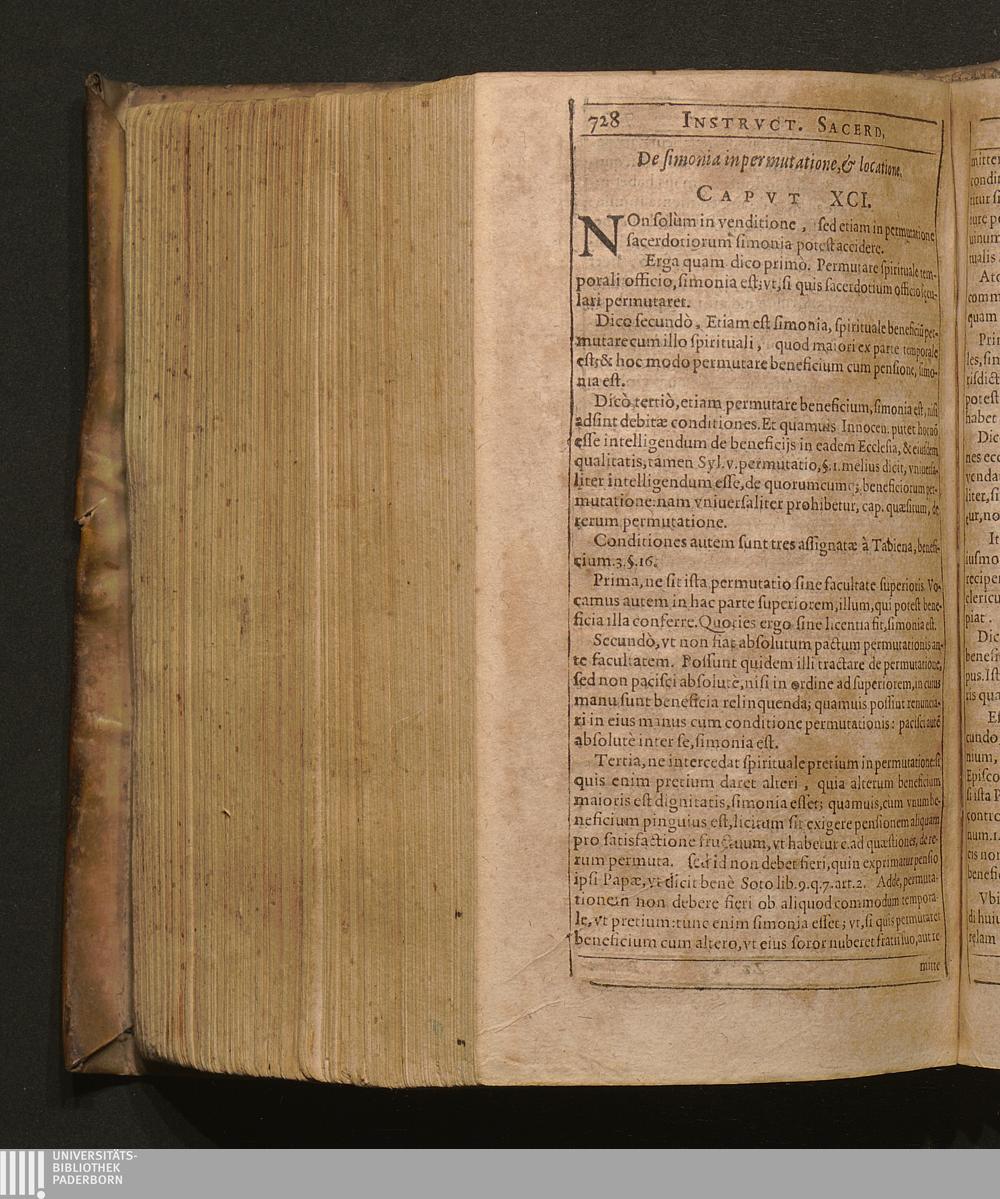 728 INSTRVCT. SACERD,
De simonia in permutatione, & locatione.
CAPVT XCI.
NOn solùm in venditione, sed etiam in permutatione
sacerdotiorum simonia potest accidere.
Erga quam dico primò. Permutare spirituale tem-
porali officio, simonia est; vt, si quis sacerdotium officio secu-
lari permutaret.
Dico secundò, Etiam est simonia, spirituale beneficiũ per-
mutare cum illo spirituali, quod maiori ex parte temporale
est; & hoc modo permutare beneficium cum pensione, simo-
nia est.
Dicò tertiò, etiam permutare beneficium, simonia est, nisi
adsint debitæ conditiones. Et quamuis Innocen. putet hoc nō
esse intelligendum de beneficijs in eadem Ecclesia, & eiusdem
qualitatis, tamen Syl. v. permutatio, §. 1. melius dicit, vniuersa-
liter intelligendum esse, de quorumcumq; beneficiorum per-
mutatione: nam vniuersaliter prohibetur, cap. quæsitum, de
rerum permutatione.
Conditiones autem sunt tres assignatæ à Tabiena, benefi-
cium. 3. §. 16.
Prima, ne sit ista permutatio sine facultate superioris. Vo-
camus autem in hac parte superiorem, illum, qui potest bene-
ficia illa conferre. Quoties ergo sine licentia fit, simonia est.
Secundò, vt non fiat absolutum pactum permutationis an-
te facultatem. Possunt quidem illi tractare de permutatione,
sed non pacisci absolutè, nisi in ordine ad superiorem, in cuius
manu sunt beneficia relinquenda; quamuis possint renuncia-
ri in eius manus cum conditione permutationis: pacisci autē
absolutè inter se, simonia est.
Tertia, ne intercedat spirituale pretium in permutatione: si
quis enim pretium daret alteri, quia alterum beneficium
maioris est dignitatis, simonia esset; quamuis, cum vnum be-
neficium pinguius est, licitum sit exigere pensionem aliquam
pro satisfactione fructuum, vt habetur c. ad quæstiones, de re-
rum permuta. sed id non debet fieri, quin exprimatur pensio
ipsi Papæ, vt dicit benè Soto lib. 9. q. 7. art. 2. Adde, permuta-
tionem non debere fieri ob aliquod commodum tempora-
le, vt pretium: tunc enim simonia esset; vt, si quis permutaret
beneficium cum altero, vt eius soror nuberet fratri suo, aut re-
mitte
mittere
Ato
comm
quam
Prin
potest
habet
Dic
nes ecc
venda
It
iusmo
recipe
clericu
piat.
Dic
benefi
cundo
nium,
Episco
contro
num. 1.
benefi
Vbi
UNIVERSITÄTS-
BIBLIOTHEK
PADERBORN